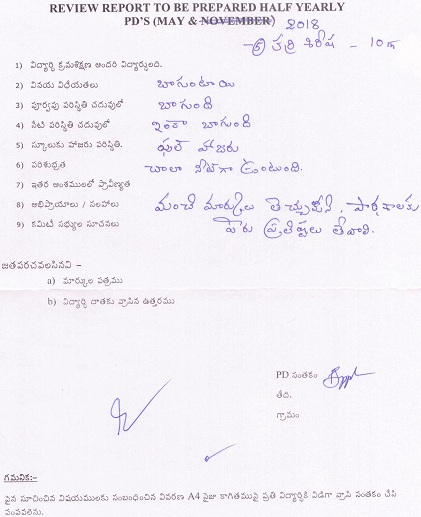 REVIEW REPORT TO BE PREPARED HALF YEARLY
PD'S (MAY & NOVEMBER) 2018
శిరీష - 10వ
1) విద్యార్థి క్రమశిక్షణ అందరి విద్యార్థులది.
2) వినయ విధేయతలు బాగుంటాయి
3) పూర్వపు పరిస్థితి చదువులో బాగుంది
4) నేటి పరిస్థితి చదువులో ఇంకా బాగుంది
5) స్కూలుకు హాజరు పరిస్థితి. ఫుల్ హాజరు
6) పరిశుభ్రత చాలా నీట్‌గా ఉంటుంది.
7) ఇతర అంశములలో ప్రావీణ్యత
8) అభిప్రాయాలు / సలహాలు మంచి మార్కులు తెచ్చుకొని, పాఠశాలకు
9) కమిటీ సభ్యుల సూచనలు పేరు ప్రతిష్టలు తేవాలి.
జతపరచవలసినవి –
a) మార్కుల పత్రము
b) విద్యార్థి దాతకు వ్రాసిన ఉత్తరము
PD సంతకం
తేది.
గ్రామం
గమనిక:-
పైన సూచించిన విషయములకు సంబంధించిన వివరణ A4 సైజు కాగితముపై ప్రతి విద్యార్థికి విడిగా వ్రాసి సంతకం చేసి
పంపవలెను.